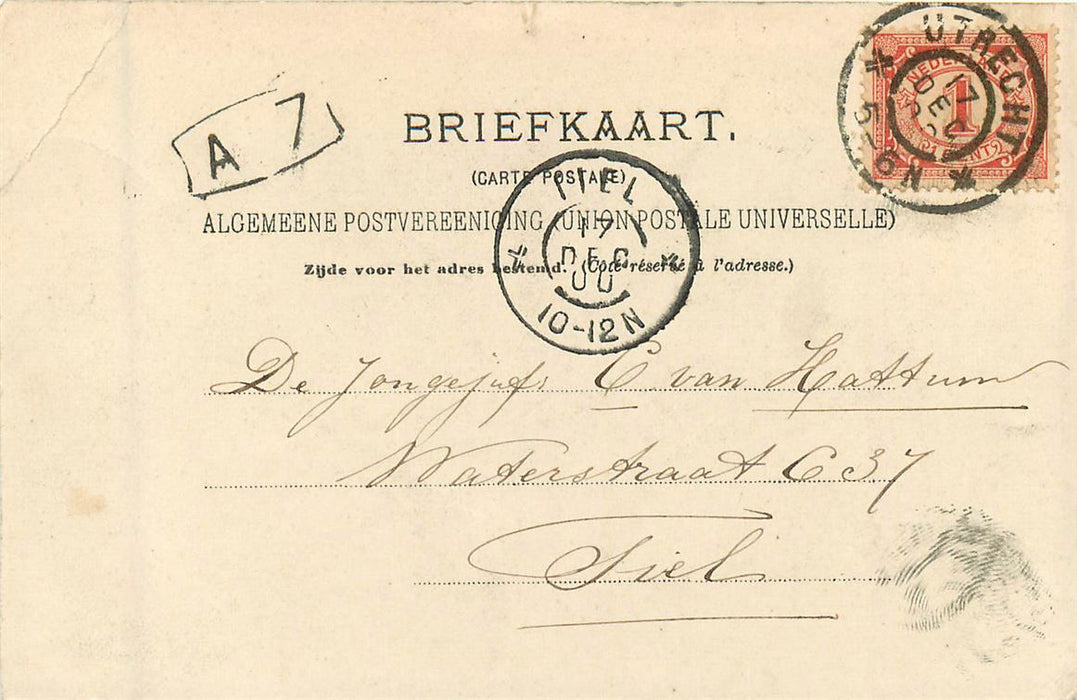 UTRECHT
17
DEC
5-6N
NEDERLAND
1
CENT
A 7
BRIEFKAART.
(CARTE POSTALE)
ALGEMEENE POSTVEREENIGING (UNION POSTALE UNIVERSELLE)
Zijde voor het adres bestemd. (Côté réservé à l'adresse.)
TIEL
17
DEC
00
10-12N
De Jongejufr C. van Hattum
Waterstraat C 37
Tiel